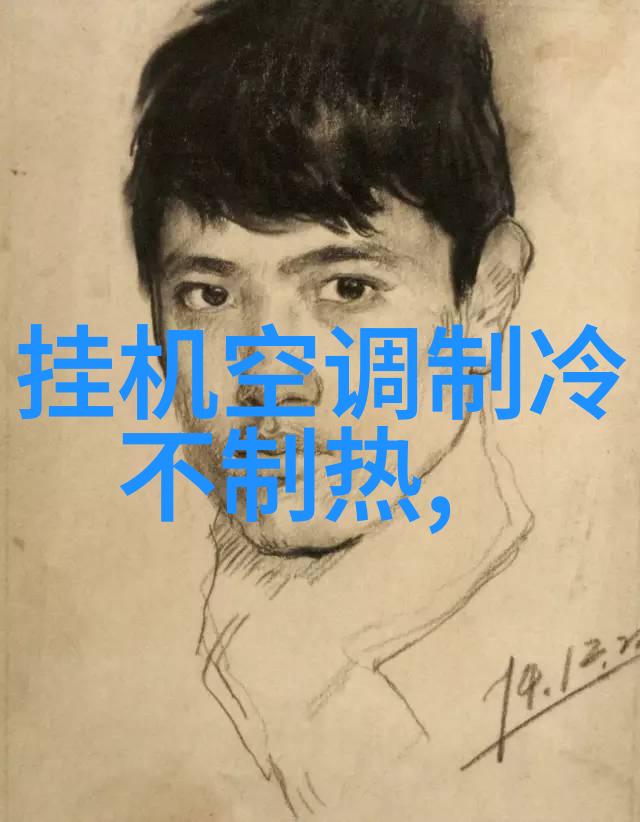 挂机空调制冷
不制热,
74.12.2